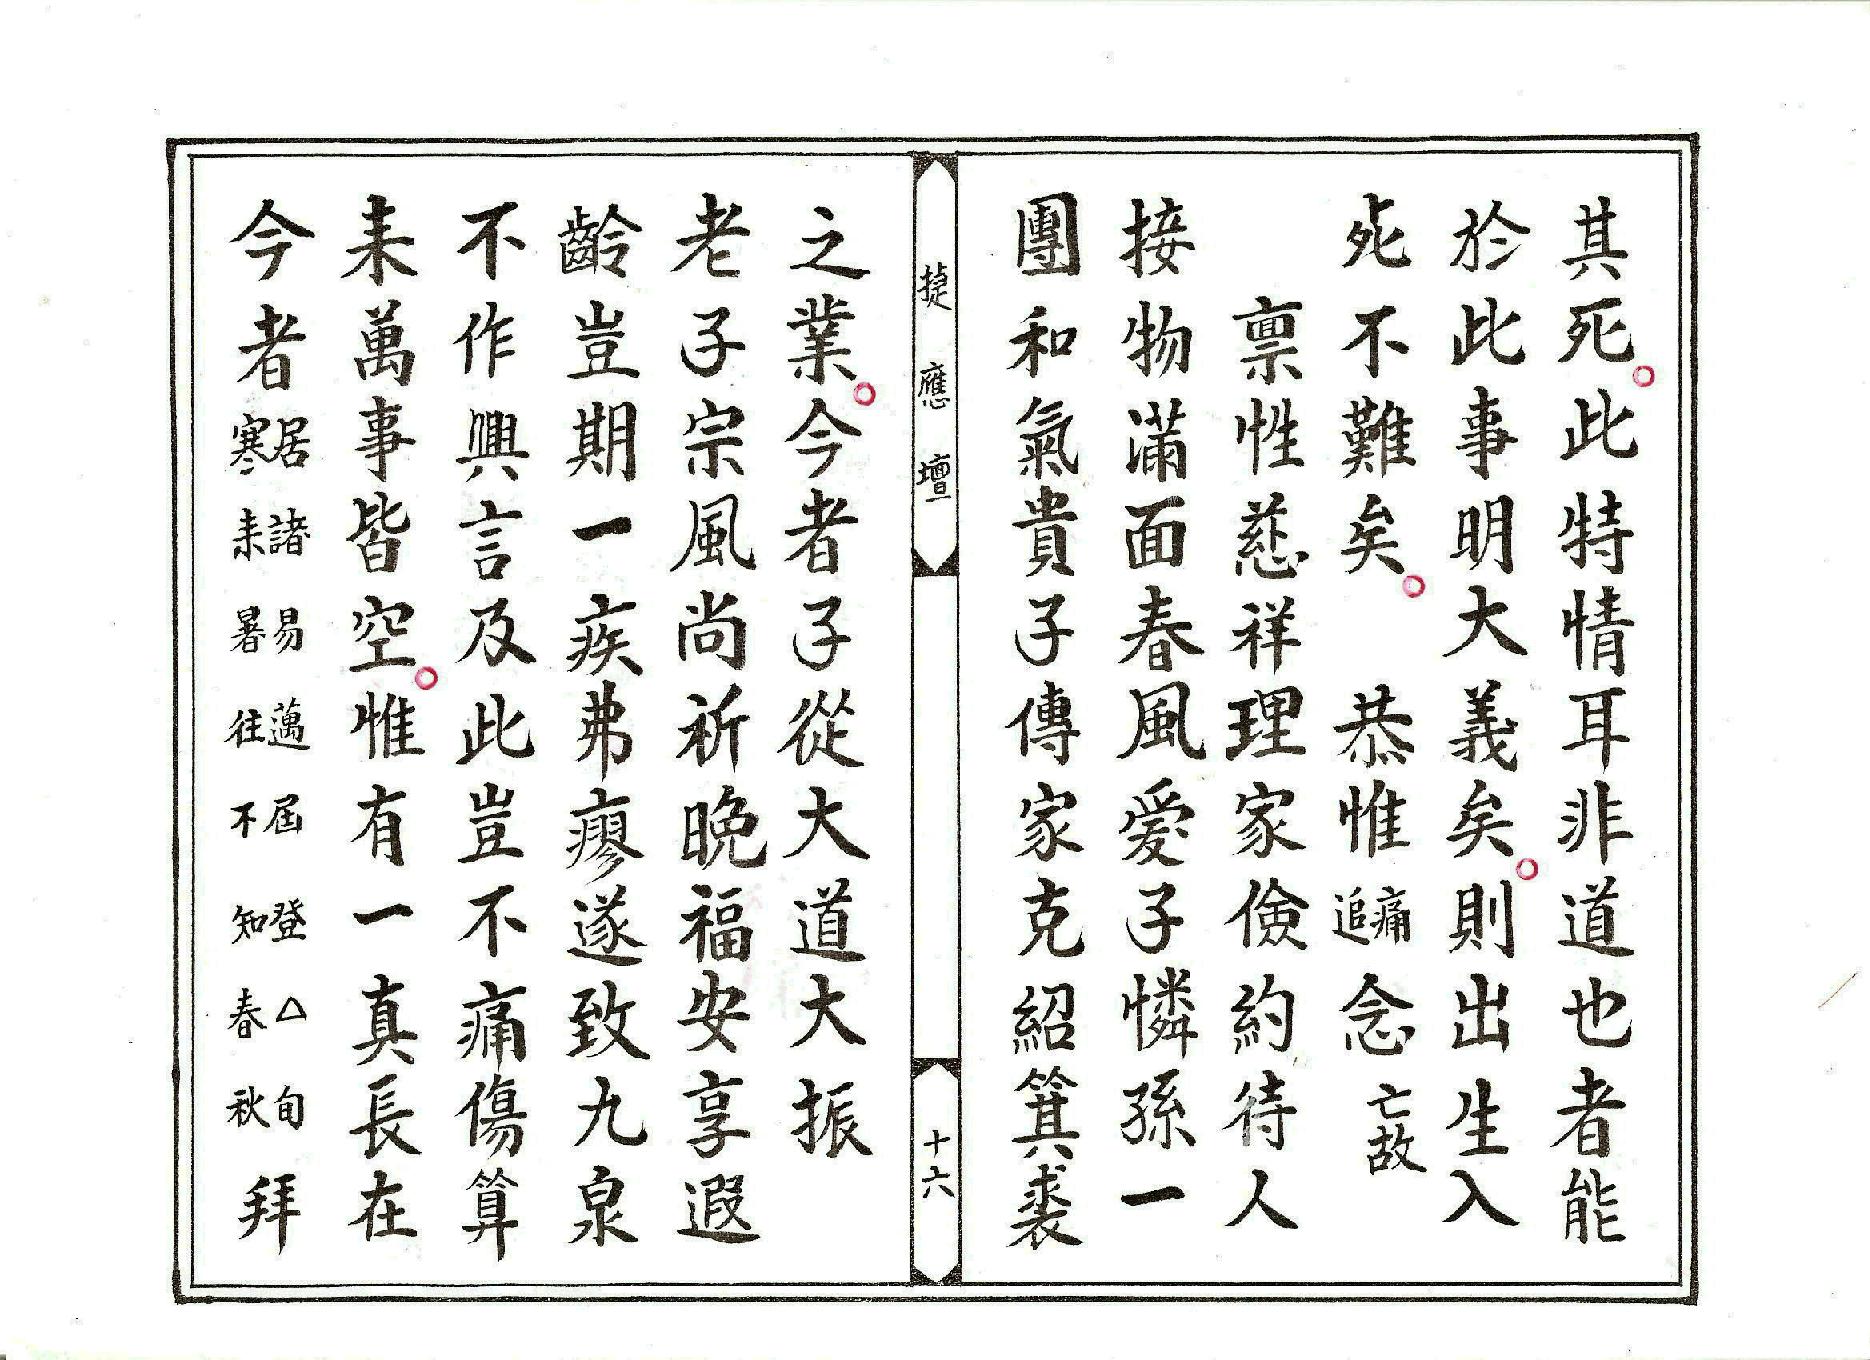 其死此特情耳非道也者能
於此事明大義矣則出生入
死不難矣　恭惟痛追念亡故
禀性慈祥理家儉約待人
接物滿面春風愛子憐孫一
團和氣貴子傳家克紹箕裘
捷應壇
十六
之業今者子從大道大振
老子宗風尚祈晚福安享遐
齡豈期一疾弗瘳遂致九泉
不作興言及此豈不痛傷算
耒萬事皆空惟有一真長在
今者居諸易邁屆登△旬寒耒暑往不知春秋拜